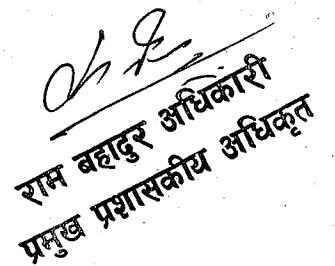 राम बहादुर अधिकारी
प्रमुख प्रशासकीय अधिकृत